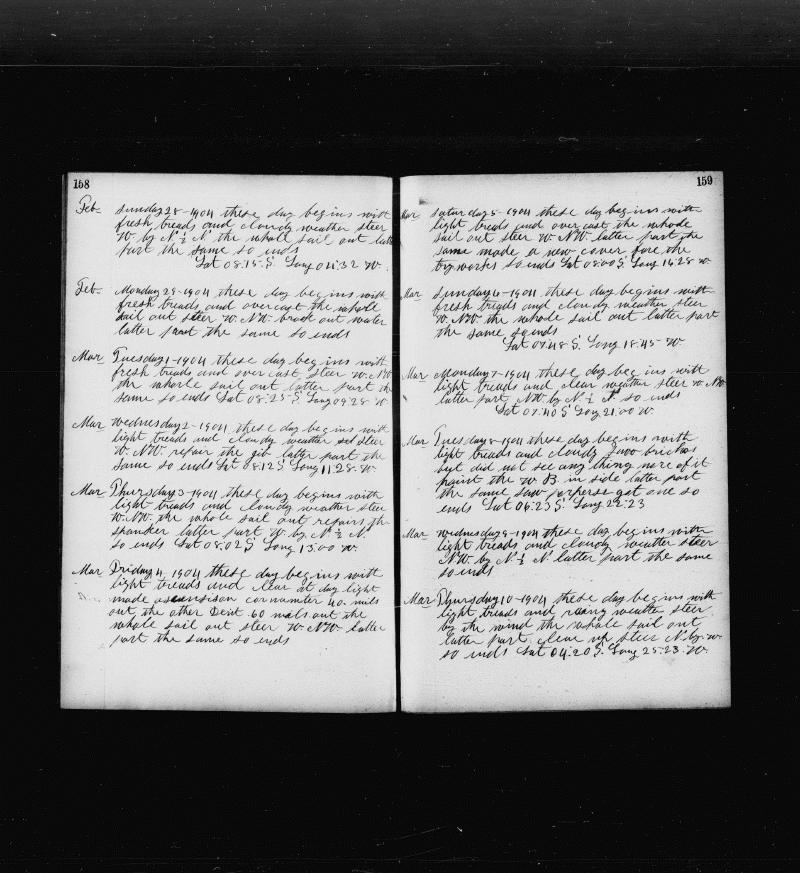 158
Feb- Sunday 28-1904 these day begins with
fresh treads and cloudy weather steer
W. by N ½ N the whole sail out latter
part the same so ends
Lat 08.18 S Long 04:32 W.
Feb- Monday 29-1904 these day begins with
fresh treads and overcast the whole
sail out steer W.NW. brock out water
latter part the same so ends
Mar Tuesday 1-1904 these day begins with
fresh treads and over cast steer W.NW
the whole sail out latter part the
same so ends Lat 08:25 S Long 09:28 W
Mar Wednesday 2-1904 these day begins with
light treads and cloudy weather steer
W.NW. repair the gib latter part the
same so ends Lat 08.12 S Long 11:28 W.
Mar Thursday 3-1904 these day begins with
light treads and cloudy weather steer
W.NW. the whole sail out repairs the
spanker latter part W. by N ½ N.
so ends Lat 08.02 S Long 13.00 W.
Mar Friday 4 1904 these day begins with
light treads and clear at day light
made 40 mils
out the other 60 mils out the
whole sail out steer W.NW. latter
part the same so ends
159
Mar Saturday 5-1904 these day begins with
light treads and over cast the whole
sail out steer W.NW. latter part the
same made a new cover fore the
tryworks so ends Lat 08:00 S Long 14:28 W
Mar Sunday 6-1904 these day begins with
fresh treads and cloudy weather steer
W.NW. the whole sail out latter part
the same so ends
Lat 07:48 S. Long 18:45 W
Mar Monday 7-1904 these day begins with
light treads and clear weather steer W.NW
latter part NW. by N ½ N so ends
Lat 07:40 S Long 21:00 W.
Mar Tuesday 8-1904 these day begins with
light treads and cloudy saw
but did not see any thing more of it
paint the W B. in side latter part
the same saw get one so
ends Lat 06:23 S Long 22:23
Mar Wednesday 9-1904 these day begins with
light treads and cloudy weather steer
NW. by N ½ N latter part the same
so ends
Mar Thursday 10-1904 these day begins with
light treads and weather steer
by the wind the whole sail out
latter part clear up steer N by W
so ends Lat 04:20 S. Long 25:23 W.